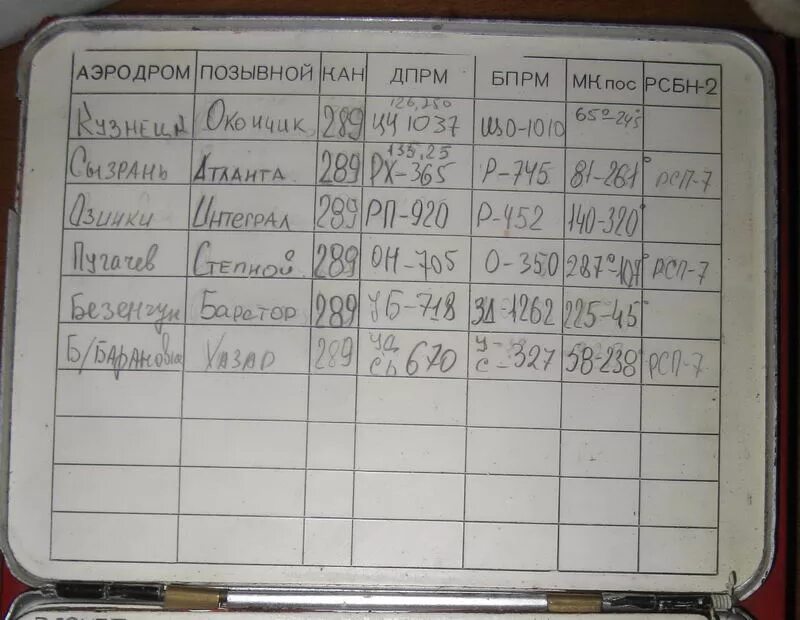 АЭРОДРОМ ПОЗЫВНОЙ КАН ДПРМ БПРМ МК пос РСБН-2
126,250 65°-245°
Кузнецк Окончик 289 ЦЧ 1037 1010
135,25
Сызрань Атланта 289 РХ-365 Р-745 81-261° РСП-7
Озинки Интеграл 289 РП-920 Р-452 140-320°
Пугачев Степной 289 ОН-705 О-350 287°-107° РСП-7
Безенчук Баратор 289 УБ-718 ЗД-1262 225-45°
Б/Баранов Хазар 289 670 327 58-238 РСП-7